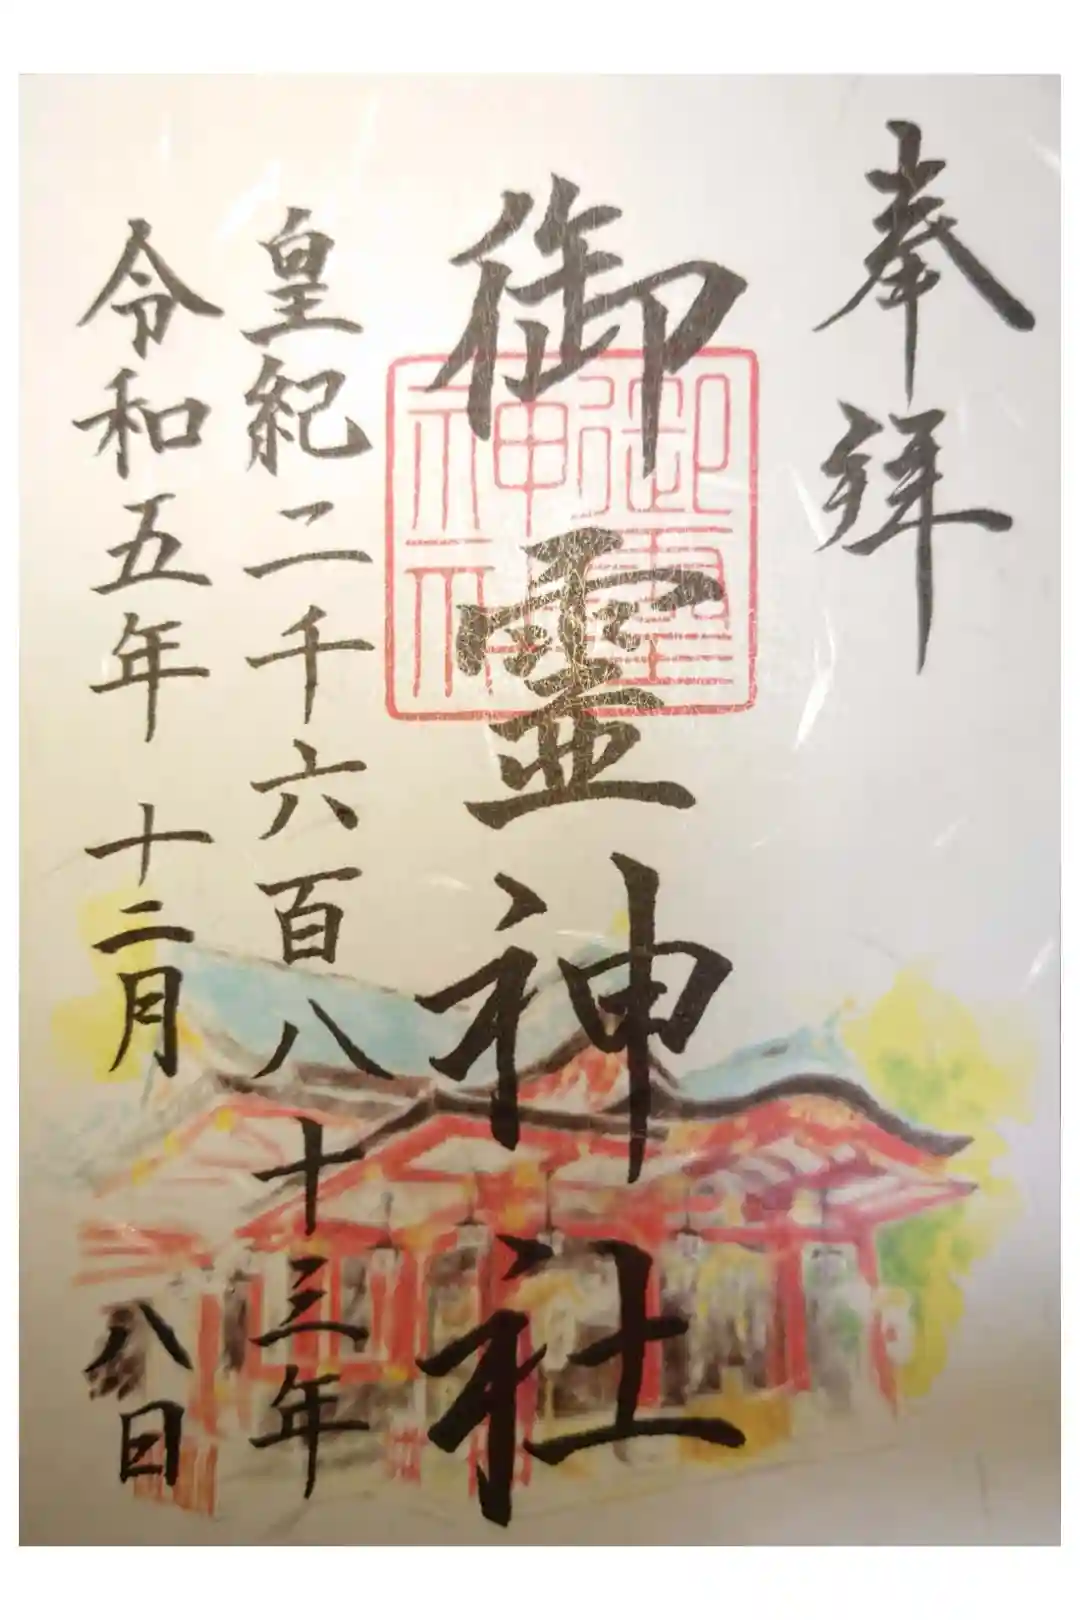 奉拝
御霊神社
御霊
神社
皇紀二千六百八十三年
令和五年 十二月 八日